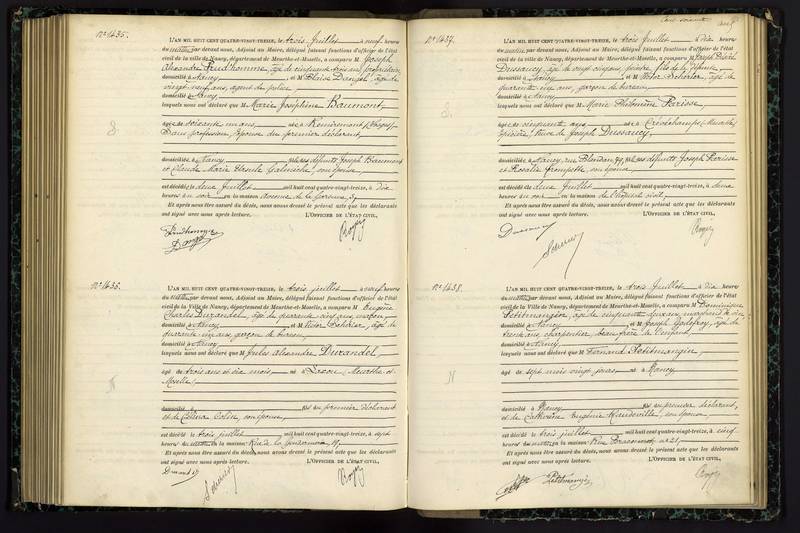 N° 1435.
L'AN MIL HUIT CENT QUATRE-VINGT-TREIZE, le trois Juillet à neuf heures
du matin par devant nous, Adjoint au Maire, délégué faisant fonctions d'officier de l'état
civil de la ville de Nancy, département de Meurthe-et-Moselle, a comparu M. Joseph
Alexandre Prudhomme, âgé de cinquante trois ans, propriétaire,
domicilié à Nancy, et M. Blaise Dangel, âgé de
vingt neuf ans, agent de police,
domicilié à Nancy,
lesquels nous ont déclaré que Marie Joséphine Baumont,
âgée de soixante un ans, née à Remiremont (Vosges)
sans profession, épouse du premier déclarant,
domiciliée à Nancy, fille des défunts Joseph Baumont
et Claude Marie Ursule son épouse,
est décédée le deux Juillet mil huit cent quatre-vingt-treize, à dix
heures du soir en la maison Avenue de la Garenne,
Et après nous être assuré du décès, nous avons dressé le présent acte que les déclarants
ont signé avec nous après lecture. L'OFFICIER DE L'ÉTAT CIVIL,
Prudhomme
N° 1436.
L'AN MIL HUIT CENT QUATRE-VINGT-TREIZE, le trois juillet à neuf heures
du matin par devant nous, Adjoint au Maire, délégué faisant fonctions d'officier de l'état
civil de la Ville de Nancy, département de Meurthe-et-Moselle, a comparu M. Eugène
Charles Durandel, âgé de quarante cinq ans, maçon,
domicilié à Nancy, et M. Victor Scherier, âgé de
quarante six ans, garçon de bureau,
domicilié à Nancy,
lesquels nous ont déclaré que M Jules Alexandre Durandel,
âgé de trois ans et dix mois, né à (Meurthe-et-
Moselle),
domicilié à fils du premier déclarant
et de Colin, son épouse,
est décédé le trois juillet mil huit cent quatre-vingt-treize, à sept
heures du matin en la maison Rue de la 19,
Et après nous être assuré du décès, nous avons dressé le présent acte que les déclarants
ont signé avec nous après lecture. L'OFFICIER DE L'ÉTAT CIVIL,
N° 1437.
L'AN MIL HUIT CENT QUATRE-VINGT-TREIZE, le trois Juillet à dix heures
du matin par devant nous, Adjoint au Maire, délégué faisant fonctions d'officier de l'état
civil de la ville de Nancy, département de Meurthe-et-Moselle, a comparu M. Joseph
Dussaucy, âgé de vingt cinq ans, peintre, fils de la défunte,
domicilié à Nancy, et M. Victor Scherier, âgé de
quarante six ans, garçon de bureau,
domicilié à Nancy,
lesquels nous ont déclaré que M Marie Philomène Parisse,
âgée de cinquante ans, née à Crévéchamps (Meurthe)
épicière, veuve de Joseph Dussaucy,
domiciliée à Nancy, rue Blandan, fille des défunts Joseph Parisse
et Rosalie son épouse,
est décédée le deux Juillet mil huit cent quatre-vingt-treize, à
heures du soir en la maison de l'hôpital civil,
Et après nous être assuré du décès, nous avons dressé le présent acte que les déclarants
ont signé avec nous après lecture. L'OFFICIER DE L'ÉTAT CIVIL,
N° 1438.
L'AN MIL HUIT CENT QUATRE-VINGT-TREIZE, le trois Juillet à dix heures
du matin par devant nous, Adjoint au Maire, délégué faisant fonctions d'officier de l'état
civil de la Ville de Nancy, département de Meurthe-et-Moselle, a comparu M. Dominique
Petitmangin, âgé de cinquante deux ans, marchand de vin,
domicilié à Nancy, et M. Joseph Godefroy, âgé de
trente ans, charpentier, beau frère de l'enfant,
domicilié à Nancy,
lesquels nous ont déclaré que M Fernand Petitmangin,
âgé de sept mois vingt jours, né à Nancy,
domicilié à Nancy, fils du premier déclarant,
et de Catherine Eugénie Mandeville, son épouse,
est décédé le trois juillet mil huit cent quatre-vingt-treize, à cinq
heures du matin en la maison Rue n° 21,
Et après nous être assuré du décès, nous avons dressé le présent acte que les déclarants
ont signé avec nous après lecture. L'OFFICIER DE L'ÉTAT CIVIL,
Petitmangin